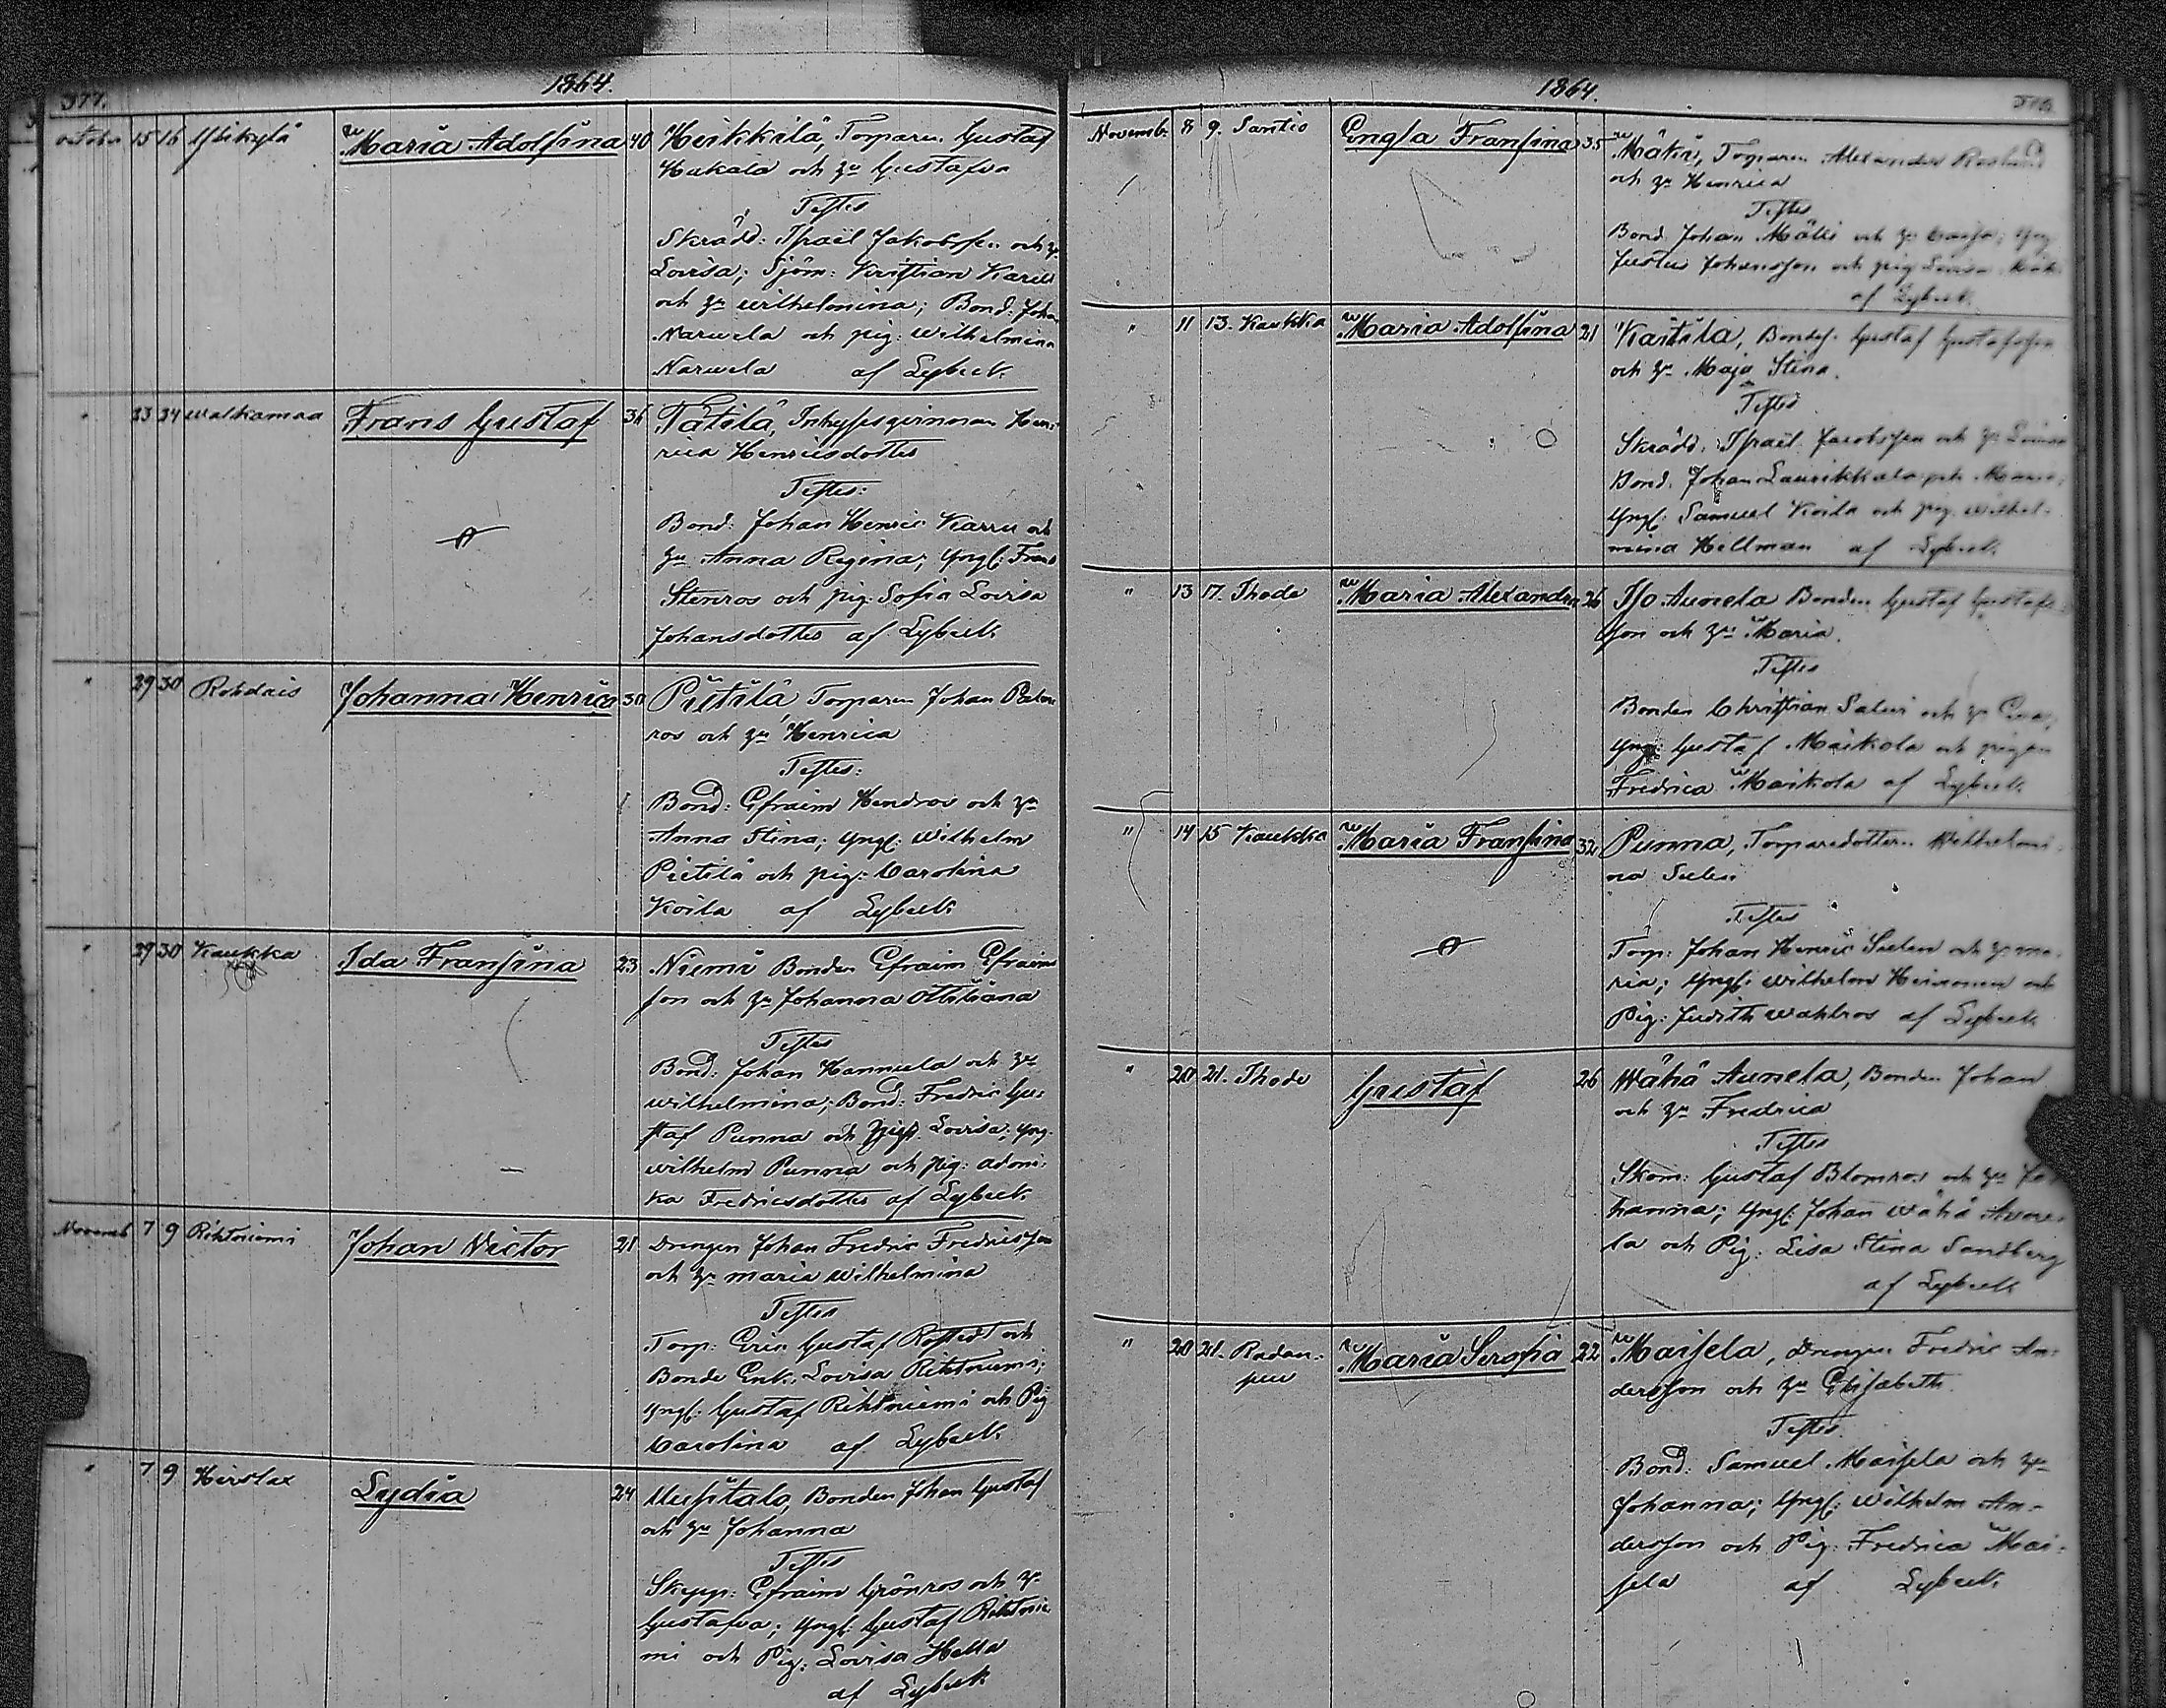 377.
1864.
October 15 16 Ylikylä Maria Adolfina 40 Heikkilä, Torparen Gustaf
Hukala och hu Gustafva
Testes
Skrädd: Israël Jakobsson och hu
Lovisa; Sjöm: Kristian Karell
och hu Wilhelmina; Bond: Johan
Narwela och pig: Wilhelmina
Narwela af Lybeck.
" 23 24 Walkamaa Frans Gustaf 36 Tätilä, Inhysesqvinnan Hen-
rica Henricsdotter
Testes:
Bond: Johan Henric Karru och
hu Anna Regina; Yngl: Frans
Stenros och pig: Sofia Lovisa
Johansdotter af Lybeck.
" 29 30 Rohdais Johanna Henrica 30 Pietilä Torparen Johan
ros och hu Henrica
Testes:
Bond: Efraim Hendrov och hu
Anna Stina; Yngl: Wilhelm
Pietilä och pig: Carolina
Koila af Lybeck
" 29 30 Kaukka Ida Fransina 23 Niemi Bonden Efraim Efraims
son och hu Johanna Ottiliana
Testes
Bond: Johan Hannula och hu
Wilhelmina; Bond: Fredric Gu-
staf Punna och Lovisa; Yng.
Wilhelm Punna och Pig: Adami-
ka Fredricsdotter af Lybeck.
Novemb 7 9 Rihtniemi Johan Victor 21 Drengen Johan Fredric Fredricsson
och hu Maria Wilhelmina
Testes
Torp: Eric Gustaf Rostedt och
Bonde Enk. Lovisa Rihtniemi;
Yngl: Gustaf Rihtniemi och Pig
Carolina af Lybeck.
" 7 9 Hirslax Lydia 24 Uusitalo, Bonden Johan Gustaf
och hu Johanna
Testes
Skepp: Efraim Grönros och hu
Gustafva; Yngl: Gustaf Rihtnie
mi och Pig: Lovisa Hella
af Lybeck
1864.
Novemb. 8 9. Santio Engla Fransina 35 Mäkis, Torparen Alexander
och hu Henrica
Testes
Bond Johan Mäkis och hu Caisa; Yng
Justus Johansson och pig Lovisa
af Lybeck.
" 11 13. Kaukka Maria Adolfina 21 Kaitila, Bondes. Gustaf Gustafsson
och hu Maja Stina.
Testes
Skrädd: Israël Jacobsson och hu Lovisa
Bond. Johan Laurikkala och Maria;
Yngl: Samuel Koila och pig. Wilhel-
mina Hellman af Lybeck.
" 13 17. Thode Maria Alexandra 26 Iso Aunela Bonden Gustaf Gustafs-
son och hu Maria.
Testes
Bonden Christian Saluis och hu
Yng: Gustaf Maikola och pigan
Fredrica Maikola af Lybeck.
" 14 15 Kaukka Maria Fransina 32 Punna, Torparedottern Wilhelmi-
na Selin
Testes
Torp: Johan Henric Selin och hu Ma-
ria; Yngl: Wilhelm Heinonen och
Pig: Judith Wahlros af Lybeck.
" 20 21. Thode Gustaf 26 Wähä Aunela, Bonden Johan
och hu Fredrica
Testes
Skom: Gustaf Blomros och hu Jo-
hanna; Yngl: Johan Wähä Aune-
la och Pig: Lisa Stina Sandberg
af Lybeck.
" 20 21. Radan- Maria Serafia 22 Maisela, Drengen Fredric An-
puu
dersson och hu Elisabeth.
Testes.
Bond: Samuel Maisela och hu
Johanna; Yngl: Wilhelm An-
dersson och Pig: Fredrica Mai-
sela af Lybeck.